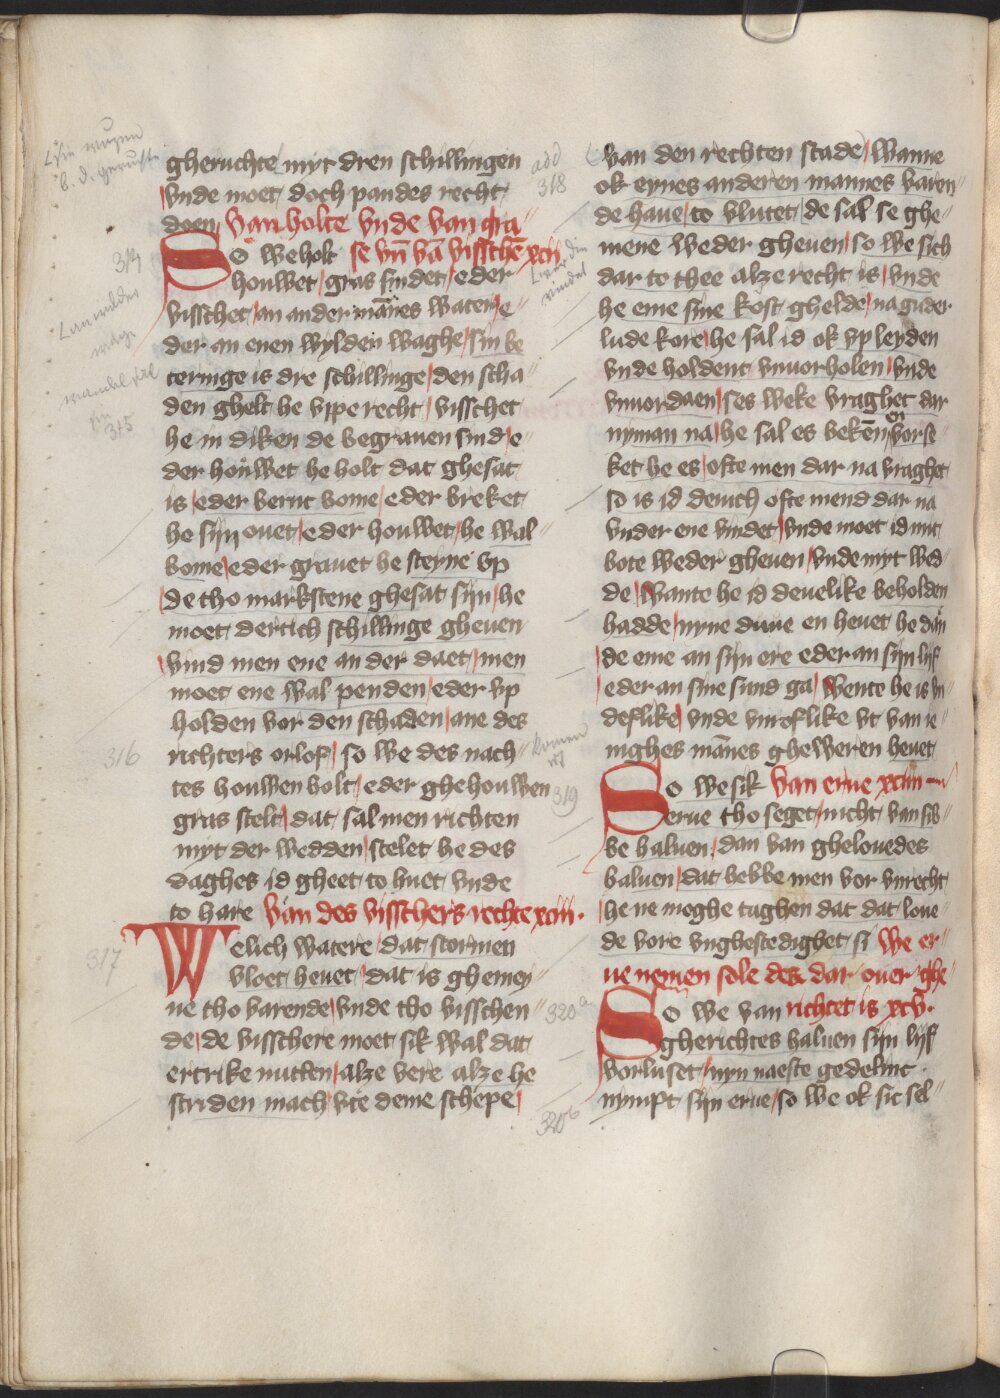 gheruchte myt dren schillingen
vnde moet doch pandes recht
doen van holte vnde van gra
So we holt se vn̄ vā visschē xcij
houwet gras snidet eder
visschet an ander mānes water e
der an enen wylden waghe sin be
teringe is dre schillinge den scha
den ghelt he vppe recht visschet
he in diken de begrauen sind e
der houwet he holt dat ghesat
is eder bernt bome eder breket
he sijn ouet eder houwet he mal
bome eder grauet he steyne vp
de tho markstene ghesat sijn he
moet dertich schillinge gheuen
vind men ene an der daet men
moet ene wal penden eder vp
holden vor den schaden ane des
richters orlof so we des nach
tes houwen holt eder ghehouwen
gras stelt dat sal men richten
myt der wedden stelet he des
daghes id gheet to huet vnde
to hare van des visschers rechte xciij
Welich watere dat stormen
vloet heuet dat is ghemey
ne tho varende vnde tho visschen
de de visschere moet sik wal dat
ertrike nutten alze vere alze he
striden mach vte deme schepe
van den rechten stade wanne
ok eynes anderen mannes varen
de haue to vlutet de sal se ghe
mene weder gheuen so we sich
dar to thee alze recht is vnde
he eme sine kost ghelde na guder
lude kore he sal id ok vp leyden
vnde holdent vnuorholen vnde
vnuordaen ses weke vraghet dar
nyman na he sal es bekēnen vorse
ket he es ofte men dar na vraghet
so is id deuich ofte mend dar na
vnder ene vindet vnde moet id mit
bote weder gheuen vnde myt wed
de wante he id deuelike beholden
hadde nyne duue en heuet he dan
de eme an sijn ere eder an sijn lijf
eder an sine sund ga wente he is vn
deflike vnde vnroflike vt van ie
nighes mānes gheweren heuet
So we sik van erue xciiii
erue tho seget nicht van sib
be haluen dan van ghelouedes
haluen dat hebbe men vor vnrecht
he ne moghe tughen dat dat loue
de vore vnghestedighet si we er
ue nemen sole des dar ouer ghe
So we van richtet is xcv
gherichtes haluen sijn lijf
vorluset nyn naeste gedelinc
nympt sijn erue so we ok sic sel
316
317
318
319
320a
320b